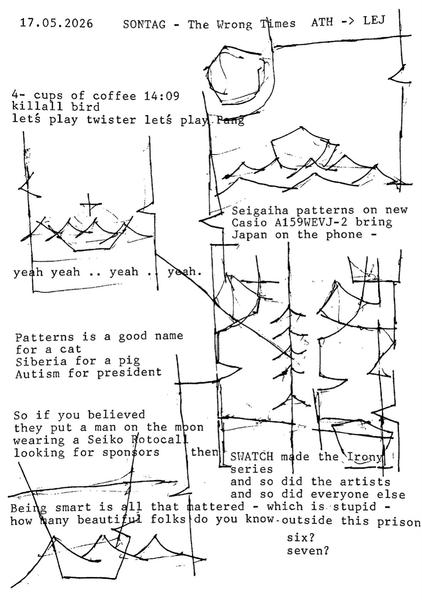 17.05.2026 SONTAG - The Wrong Times ATH -> LEJ
4- cups of coffee 14:09
killall bird
letś play twister letś play Fang
Seigaiha patterns on new
Casio A159WEVJ-2 bring
Japan on the phone -
yeah yeah .. yeah .. yeah.
Patterns is a good name
for a cat
Siberia for a pig
Autism for president
So if you believed
they put a man on the moon
wearing a Seiko Rotocall
looking for sponsors then
SWATCH made the Irony
series
and so did the artists
and so did everyone else
Being smart is all that mattered - which is stupid -
how many beautiful folks do you know outside this prison
six?
seven?